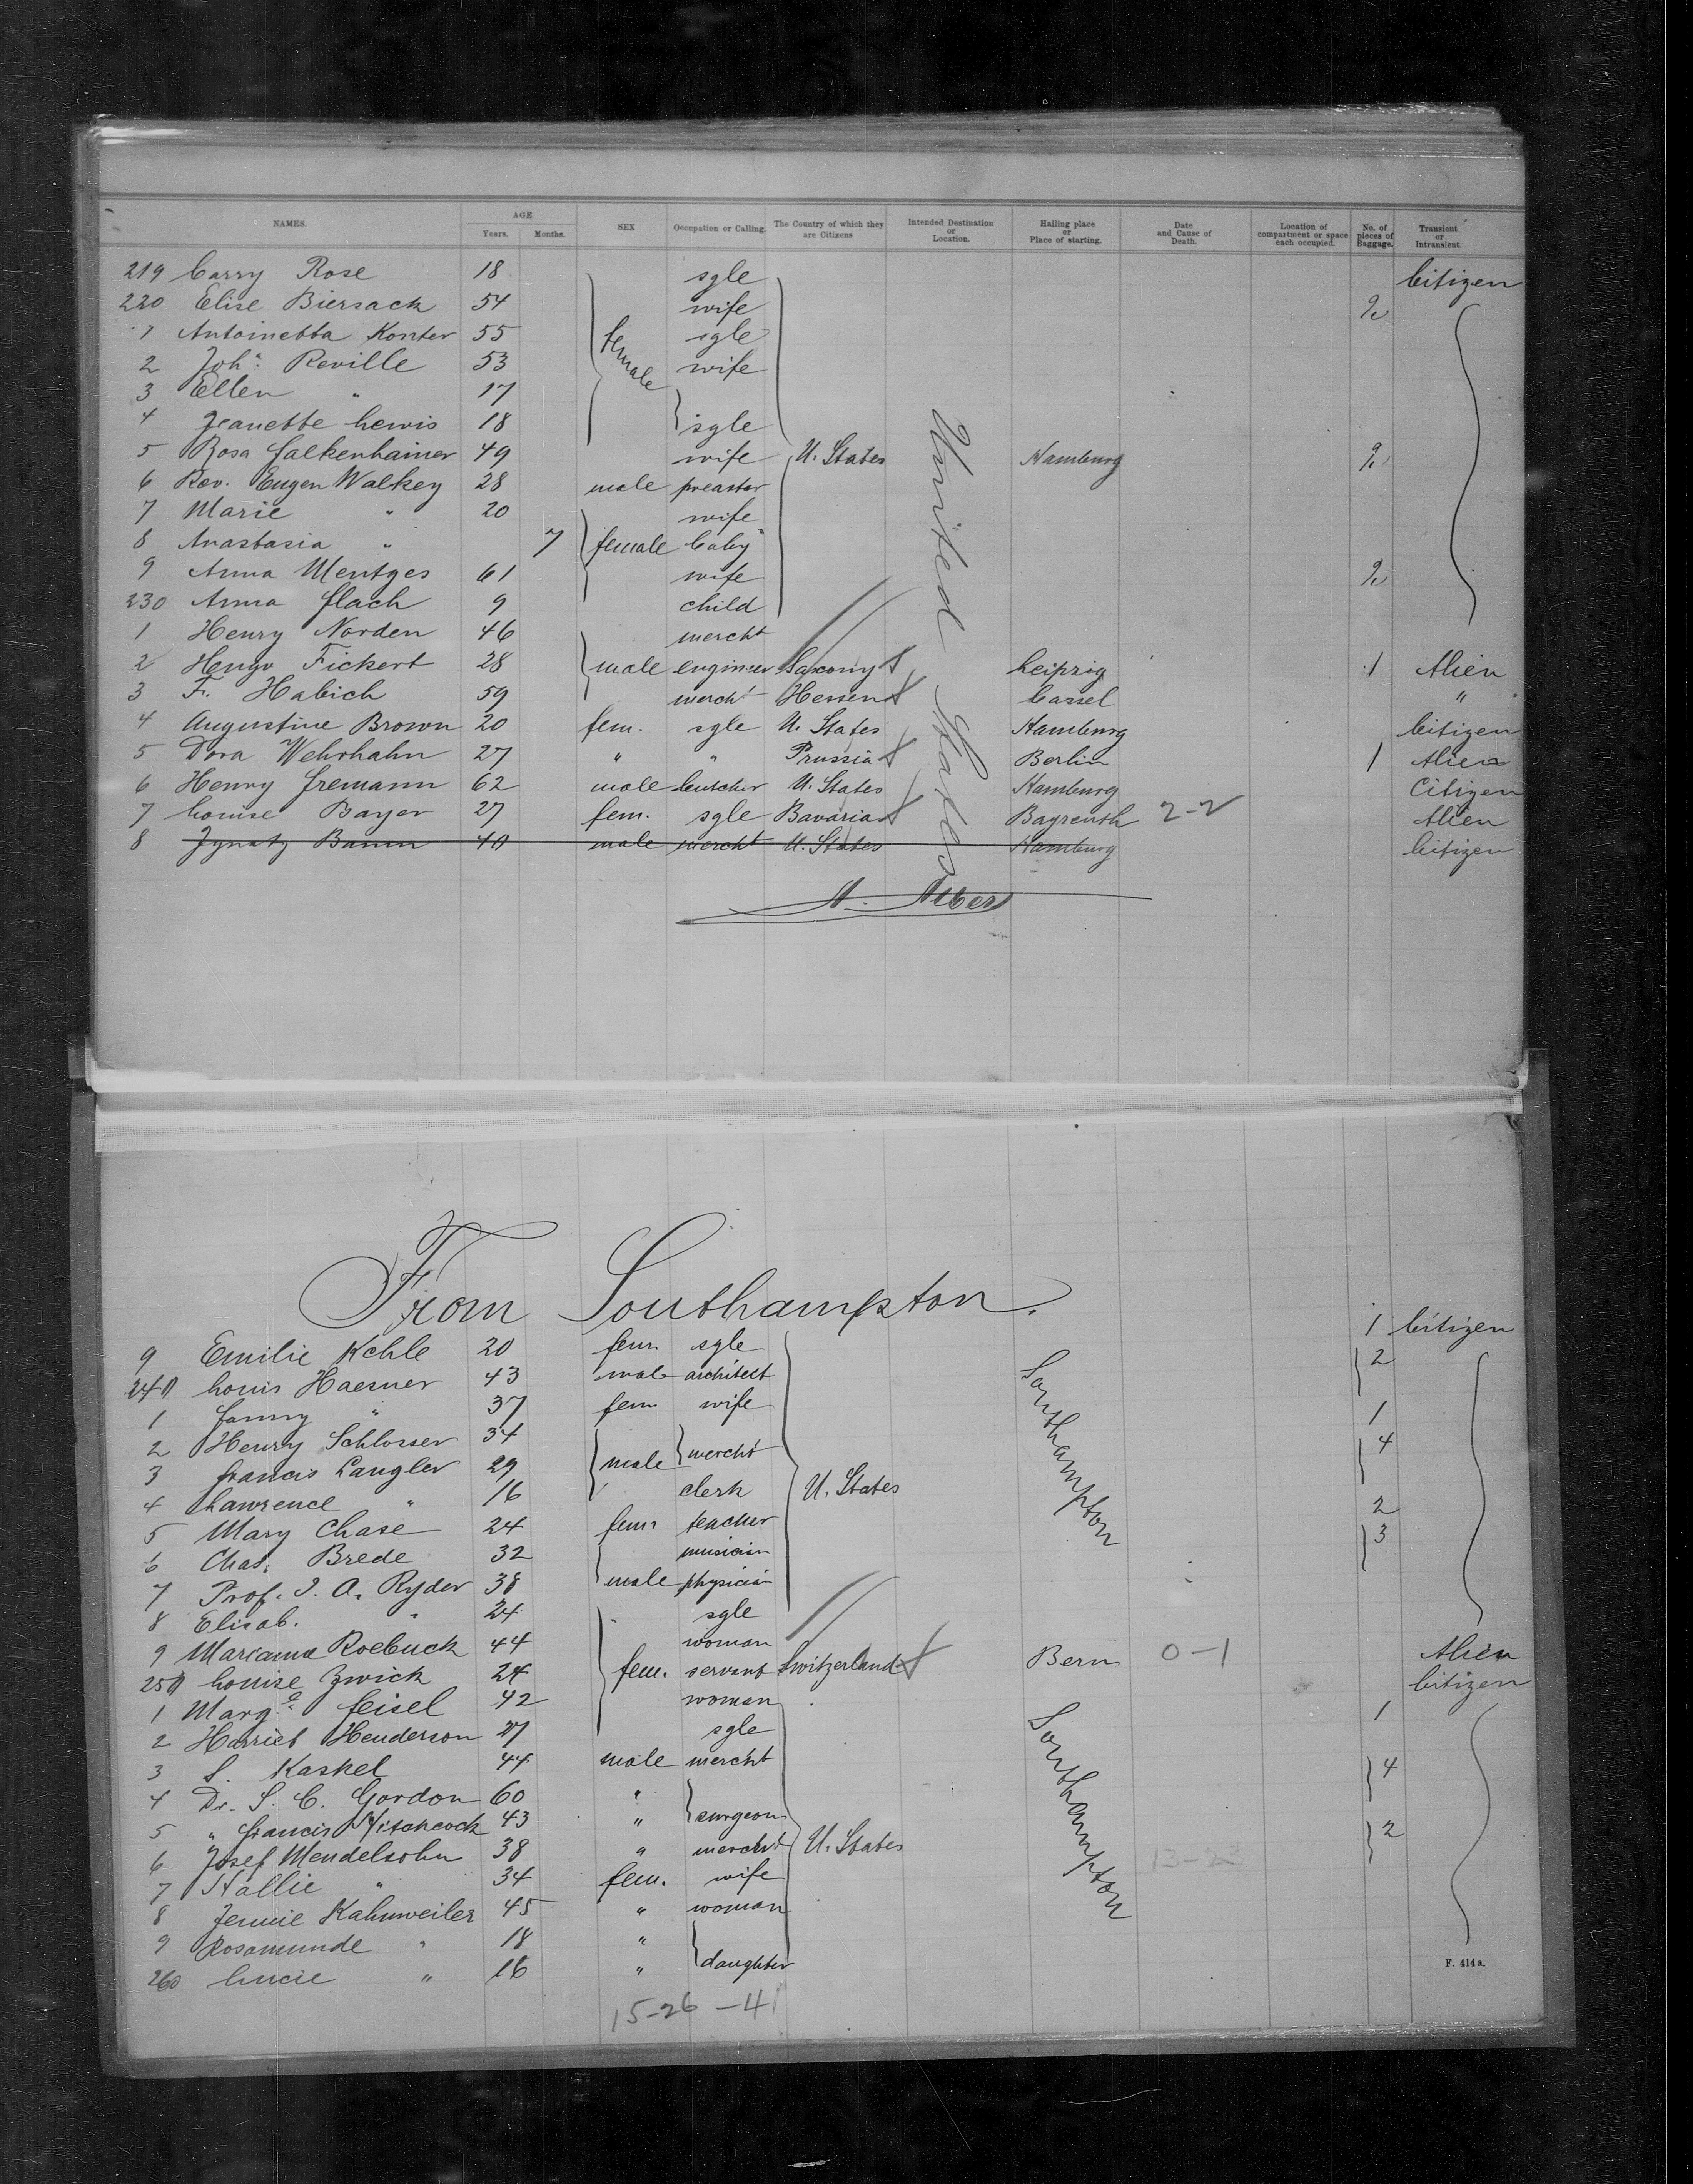 NAMES. AGE Years. Months. SEX Occupation or Calling. The Country of which they are Citizens Intended Destination or Location. Hailing place or Place of starting. Date and Cause of Death. Location of compartment or space each occupied. No. of pieces of Baggage. Transient or Intransient.
219 Carry Rose 18 sgle Citizen
220 Elise Biersack 54 wife 2
1 Antoinetta Konter 55 sgle
2 Joh.a Reville 53 female wife
3 Ellen " 17
4 Jeanette Lewis 18 sgle
5 Rosa Falkenhainer 49 wife U. States Hamburg 2
6 Rev. Eugen Walkey 28 male preaster
7 Marie " 20 wife
8 Anastasia " 7 female baby
9 Anna Mentges 61 wife 2
230 Anna Flach 9 child
United States
1 Henry Norden 46 mercht
2 Hugo Fickert 28 male engineer Saxony Leipzig 1 Alien
3 Fr. Habich 59 mercht Hessen Cassel "
4 Augustine Brown 20 fem. sgle U. States Hamburg Citizen
5 Dora Wehrhahn 27 " " Prussia Berlin 1 Alien
6 Henry Fremann 62 male butcher U. States Hamburg Citizen
7 Louise Bayer 27 fem. sgle Bavaria Bayreuth 2-2 Alien
8 Ignatz Baum 40 male mercht U. States Hamburg Citizen
A. Albers
From Southampton.
9 Emilie Kehle 20 fem. sgle 1 Citizen
240 Louis Haerner 43 male architect 2
1 Fanny " 37 fem wife
2 Henry Schlosser 34 1
3 Francis Langler 29 male mercht 4
4 Lawrence " 16 clerk U. States Southampton
5 Mary Chase 24 fem. teacher 2
6 Chas. Brede 32 musician 3
7 Prof. J. A. Ryder 38 male physician
8 Elisab. " 24 sgle
9 Mariama Roebuck 44 woman
250 Louise Zwick 24 fem. servant Switzerland Bern 0-1 Alien
1 Marg.e Feisel 42 woman Citizen
2 Harriet Henderson 27 sgle 1
3 S. Kaskel 44 male mercht
4 Dr. S. C. Gordon 60 " 4
5 " Francis Hitchcock 43 " surgeon
6 Josef Mendelsohn 38 " mercht U. States Southampton 13-23 2
7 Hallie " 34 fem. wife
8 Jennie Kahnweiler 45 " woman
9 Rosamunde " 18 "
260 Lucie " 16 " daughter
F. 414 a.
15-26-41